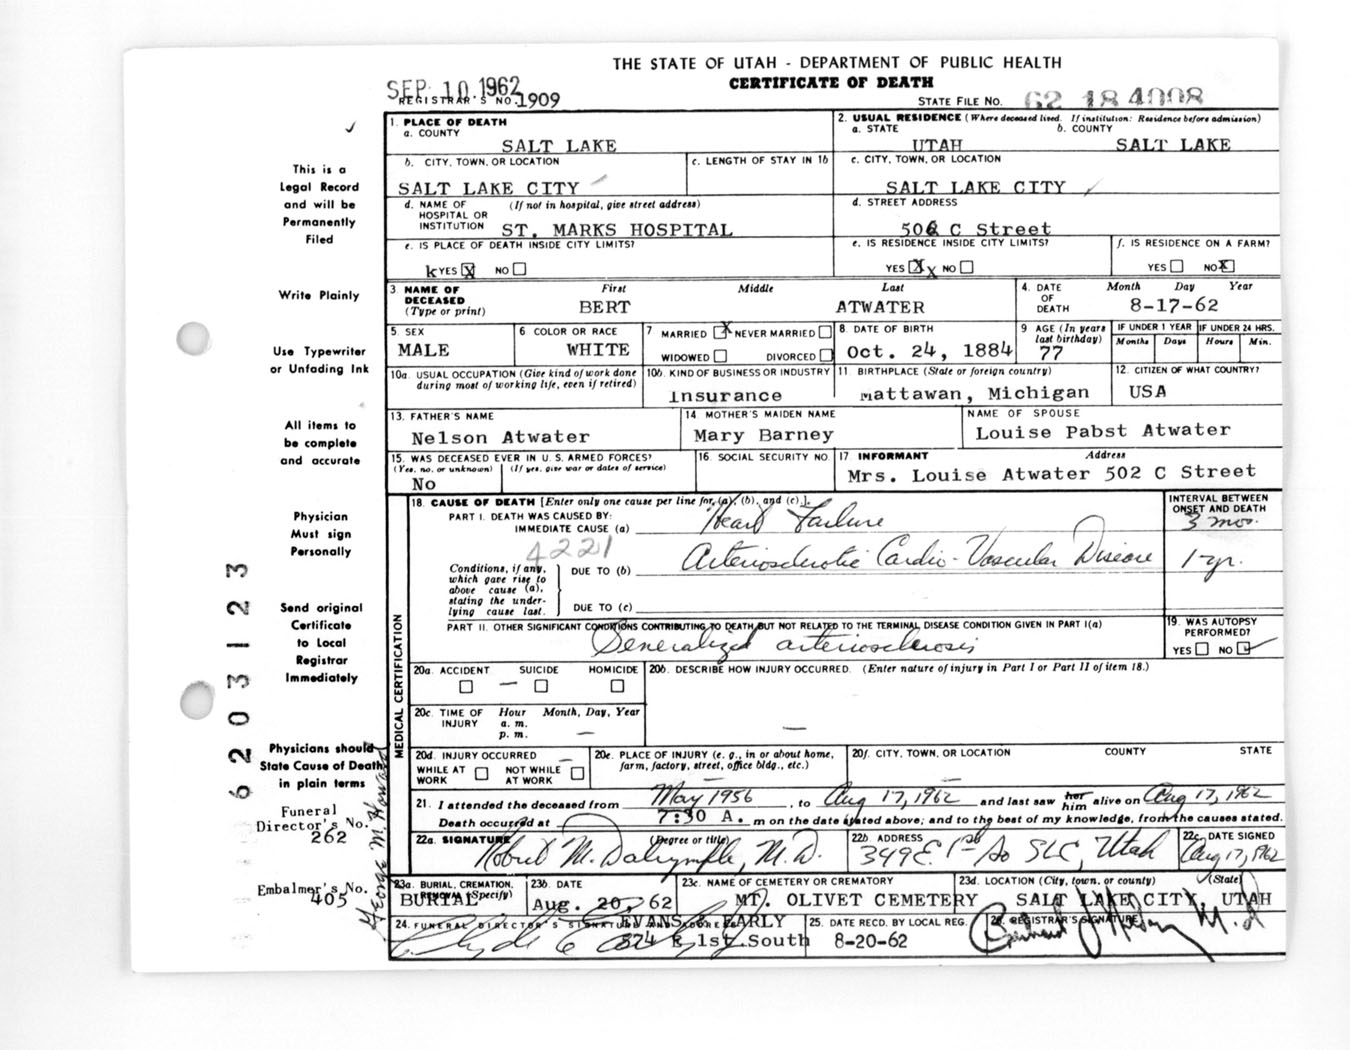 THE STATE OF UTAH - DEPARTMENT OF PUBLIC HEALTH
CERTIFICATE OF DEATH
SEP 10 1962
REGISTRAR'S NO. 1909
STATE FILE NO. 62 18 4008
This is a
Legal Record
and will be
Permanently
Filed
Write Plainly
Use Typewriter
or Unfading Ink
All items to
be complete
and accurate
Physician
Must sign
Personally
Send original
Certificate
to Local
Registrar
Immediately
Physicians should
State Cause of Death
in plain terms
Funeral
Director's No.
262
Embalmer's No.
405
George M. Howard
6203-123
1. PLACE OF DEATH
a. COUNTY
SALT LAKE
2. USUAL RESIDENCE (Where deceased lived. If institution: Residence before admission)
a. STATE b. COUNTY
UTAH SALT LAKE
b. CITY, TOWN, OR LOCATION
SALT LAKE CITY
c. LENGTH OF STAY IN 1b
c. CITY, TOWN, OR LOCATION
SALT LAKE CITY
d. NAME OF (If not in hospital, give street address)
HOSPITAL OR
INSTITUTION ST. MARKS HOSPITAL
d. STREET ADDRESS
502 C Street
e. IS PLACE OF DEATH INSIDE CITY LIMITS?
k YES X NO
e. IS RESIDENCE INSIDE CITY LIMITS?
YES X x NO
f. IS RESIDENCE ON A FARM?
YES NO X
3. NAME OF DECEASED (Type or print)
First Middle Last
BERT ATWATER
4. DATE OF DEATH
Month Day Year
8-17-62
5. SEX
MALE
6 COLOR OR RACE
WHITE
7 MARRIED X NEVER MARRIED
WIDOWED DIVORCED
8. DATE OF BIRTH
Oct. 24, 1884
9 AGE (In years last birthday)
77
IF UNDER 1 YEAR IF UNDER 24 HRS.
Months Days Hours Min.
10a. USUAL OCCUPATION (Give kind of work done
during most of working life, even if retired)
10b. KIND OF BUSINESS OR INDUSTRY
Insurance
11 BIRTHPLACE (State or foreign country)
Mattawan, Michigan
12. CITIZEN OF WHAT COUNTRY?
USA
13. FATHER'S NAME
Nelson Atwater
14 MOTHER'S MAIDEN NAME
Mary Barney
NAME OF SPOUSE
Louise Pabst Atwater
15. WAS DECEASED EVER IN U. S. ARMED FORCES?
(Yes, no, or unknown) (If yes, give war or dates of service)
No
16. SOCIAL SECURITY NO.
17 INFORMANT Address
Mrs. Louise Atwater 502 C Street
MEDICAL CERTIFICATION
18. CAUSE OF DEATH [Enter only one cause per line for (a), (b), and (c).]
INTERVAL BETWEEN
ONSET AND DEATH
PART I. DEATH WAS CAUSED BY:
IMMEDIATE CAUSE (a) Heart Failure 3 mos.
4221
Conditions, if any,
which gave rise to
above cause (a),
stating the under-
lying cause last.
DUE TO (b) Arteriosclerotic Cardio-Vascular Disease 1 yr.
DUE TO (c)
PART II. OTHER SIGNIFICANT CONDITIONS CONTRIBUTING TO DEATH BUT NOT RELATED TO THE TERMINAL DISEASE CONDITION GIVEN IN PART I(a)
Generalized arteriosclerosis
19. WAS AUTOPSY
PERFORMED?
YES NO ✓
20a. ACCIDENT SUICIDE HOMICIDE
20b. DESCRIBE HOW INJURY OCCURRED. (Enter nature of injury in Part I or Part II of item 18.)
20c. TIME OF INJURY
Hour Month, Day, Year
a. m.
p. m.
20d. INJURY OCCURRED
WHILE AT WORK NOT WHILE AT WORK
20e. PLACE OF INJURY (e. g., in or about home,
farm, factory, street, office bldg., etc.)
20f. CITY, TOWN, OR LOCATION COUNTY STATE
21. I attended the deceased from May 1956, to Aug 17, 1962 and last saw her him alive on Aug 17, 1962
Death occurred at 7:30 A. m on the date stated above; and to the best of my knowledge, from the causes stated.
22a. SIGNATURE (Degree or title)
Robert M. Dalrymple, M.D.
22b ADDRESS
349 E. 1st So SLC, Utah
22c. DATE SIGNED
Aug 17, 1962
23a. BURIAL, CREMATION, REMOVAL (Specify)
BURIAL
23b. DATE
Aug. 20, 62
23c. NAME OF CEMETERY OR CREMATORY
MT. OLIVET CEMETERY
23d. LOCATION (City, town, or county) (State)
SALT LAKE CITY, UTAH
24. FUNERAL DIRECTOR'S SIGNATURE AND ADDRESS
EVANS & EARLY
574 E 1st South
25. DATE RECD. BY LOCAL REG.
8-20-62
26. REGISTRAR'S SIGNATURE